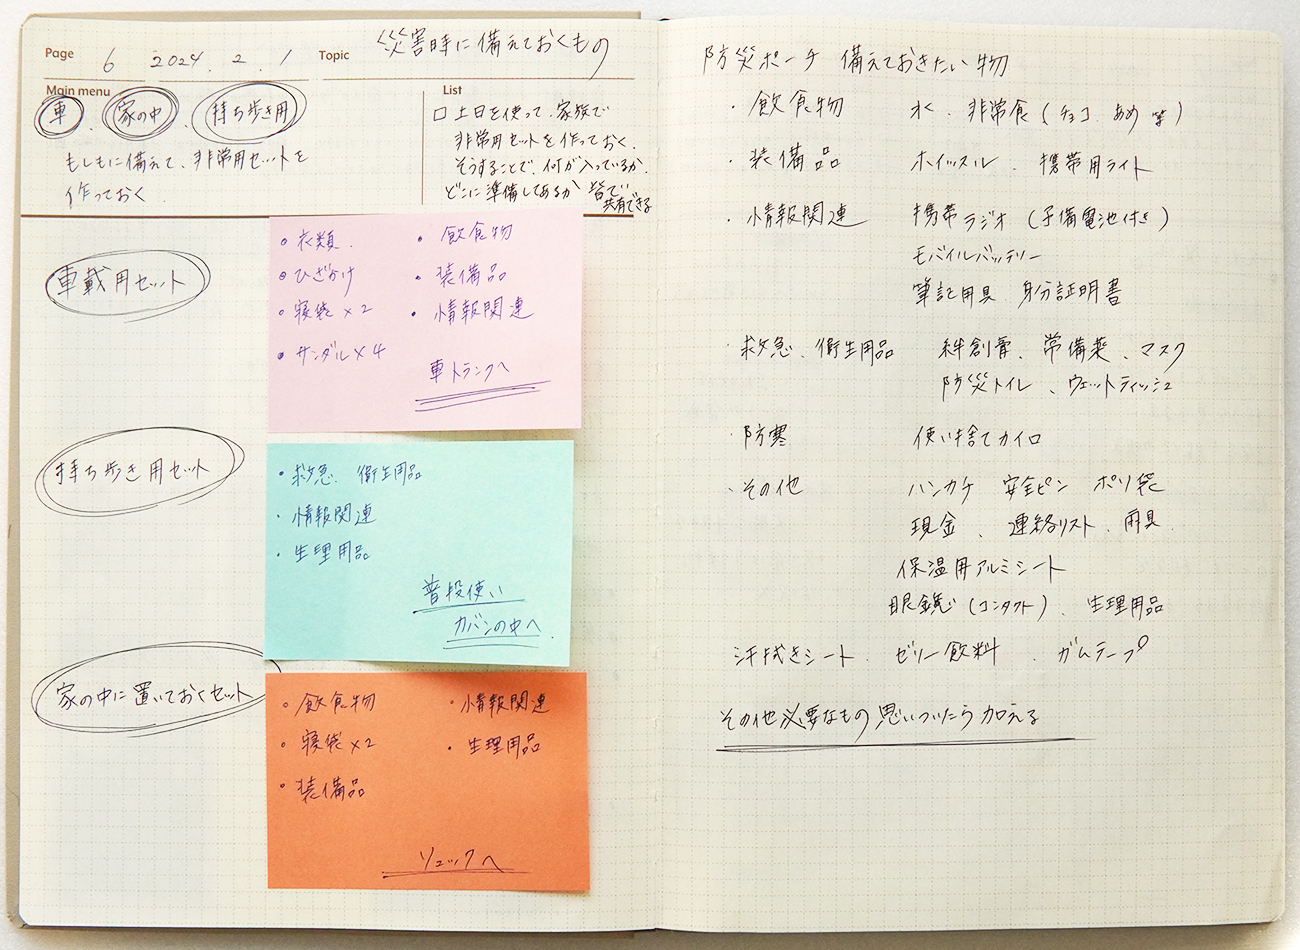 Page 6 2024.2.1 Topic 災害時に備えておくもの
Main menu
車、家の中、持ち歩き用
もしもに備えて、非常用セットを
作っておく
List
□ 土日を使って、家族で
非常用セットを作っておく.
そうすることで、何が入っているか.
どこに準備してあるか 皆で
共有できる
車載用セット
• 衣類.
• ひざかけ
• 寝袋×2
• サンダル×4
• 飲食物
• 装備品
• 情報関連
車トランクへ
持ち歩き用セット
• 救急、衛生用品
• 情報関連
• 生理用品
普段使い
カバンの中へ.
家の中に置いておくセット
• 飲食物
• 寝袋×2
• 装備品
• 情報関連
• 生理用品
リュックへ
防災ポーチ 備えておきたい物
・飲食物 水、非常食(チョコ、あめ 等)
・装備品 ホイッスル、携帯用ライト
・情報関連 携帯ラジオ(予備電池付き)
モバイルバッテリー
筆記用具、身分証明書
・救急、衛生用品 絆創膏、常備薬、マスク
防災トイレ、ウェットティッシュ
・防寒 使い捨てカイロ
・その他 ハンカチ 安全ピン ポリ袋
現金、連絡リスト、雨具.
保温用アルミシート
眼鏡(コンタクト)、生理用品
汗拭きシート、ゼリー飲料、ガムテープ
その他必要なもの思いついたら加える